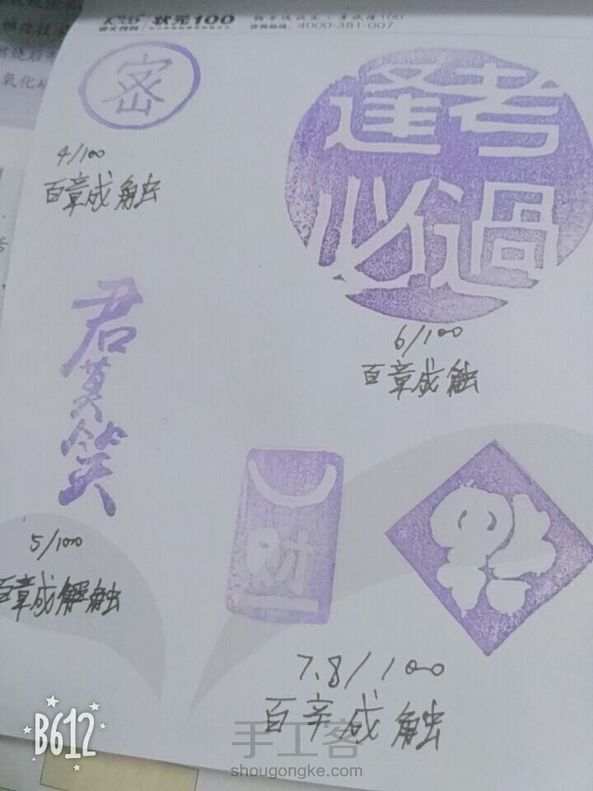 状元100
4000-381-007
密
4/100
百章成触
逢考
必過
6/100
百章成触
君莫笑
5/100
百章成解触
财
福
7.8/100
百辛成触
B612
手工客
shougongke.com
氧化